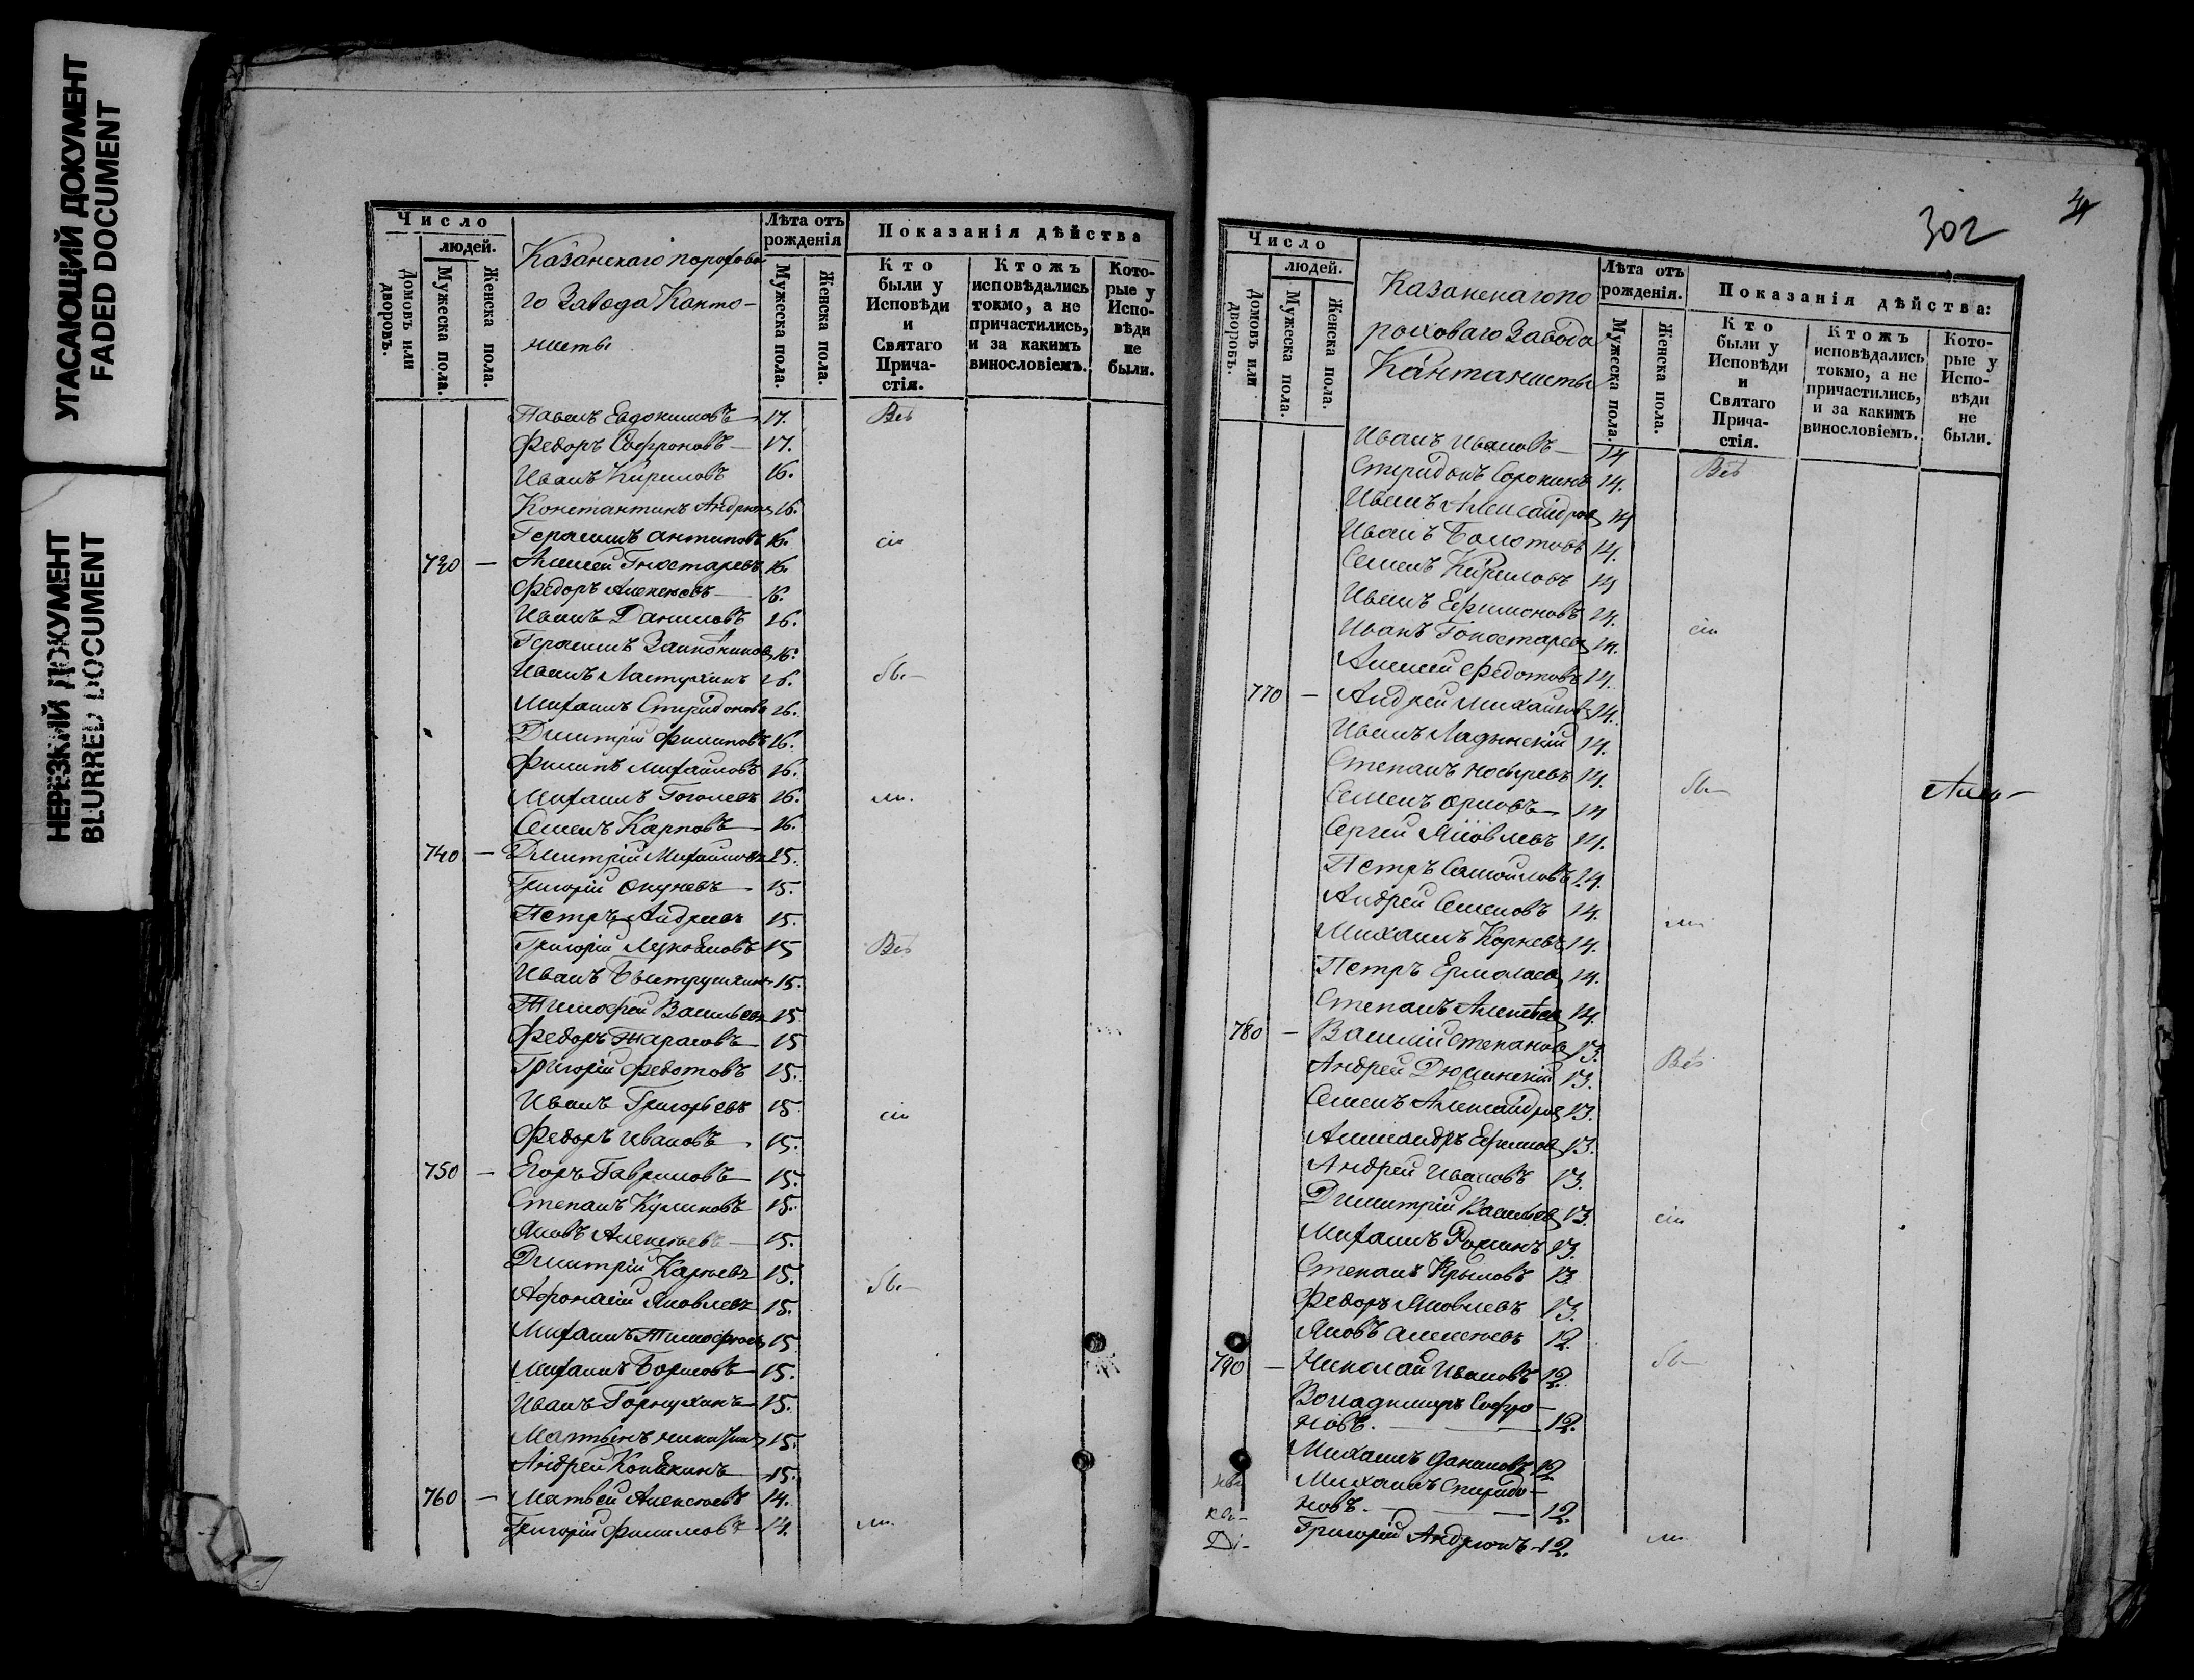 УГАСАЮЩИЙ ДОКУМЕНТ
FADED DOCUMENT
НЕРЕЗКИЙ ДОКУМЕНТ
BLURRED DOCUMENT
Число
людей.
Домовъ или дворовъ.
Мужеска пола.
Женска пола.
Казанскаго порохова
го Завода Канто-
нисты
Лѣта отъ рожденія
Мужеска пола.
Женска пола.
Показанія дѣйства
Кто были у Исповѣди и Святаго Прича- стія.
Ктожъ исповѣдались токмо, а не причастились, и за какимъ винословіемъ.
Кото- рые у Испо- вѣди не были.
Павелъ Евдокимовъ 17. Всѣ
Федоръ Софроновъ 17.
Иванъ Кириловъ 16.
Константинъ Андреевъ 16.
Герасимъ Антиповъ 16. сіи
730 — Алексей Гностаревъ 16.
Федоръ Алексеевъ 16.
Иванъ Даниловъ 16.
Герасимъ 16.
Иванъ Ластухинъ 16. бы-
Михаилъ Спиридоновъ 16.
Димитрій Филиповъ 16.
Филипъ Михайловъ 16.
Михаилъ Гоголевъ 16. ли.
Семенъ Карповъ 16.
740 — Димитрій Михайловъ 15.
Григорій Окуневъ 15.
Петръ Андреевъ 15.
Григорій Лукояновъ 15 Всѣ
Иванъ Быструшкинъ 15.
Тимофей Васильевъ 15
Федоръ Тарасовъ 15
Григорій Федотовъ 15.
Иванъ Григорьевъ 15 сіи
Федоръ Ивановъ 15.
750 — Егоръ Гавриловъ 15.
Степанъ Куликовъ 15.
Яковъ Алексеевъ 15.
Димитрій Карпевъ 15.
Афонасій Яковлевъ 15. бы-
Михаилъ Тимофеевъ 15
Михаилъ Борисовъ 15.
Иванъ Горнухинъ 15.
Мартынъ 15.
Андрей Копѣкинъ 15.
760 — Матвей Алексеевъ 14.
Григорій Филиповъ 14. ли.
302
Число
людей.
Домовъ или дворовъ.
Мужеска пола.
Женска пола.
Казанскаго по
роховаго Завода
Кантанисты
Лѣта отъ рожденія.
Мужеска пола.
Женска пола.
Показанія дѣйства:
Кто были у Исповѣди и Святаго Прича- стія.
Ктожъ исповѣдались токмо, а не причастились, и за какимъ винословіемъ.
Кото- рые у Испо- вѣди не были.
Иванъ Ивановъ 14
Спиридонъ Сорокинъ 14. Всѣ
Иванъ Александровъ 14
Иванъ Болотовъ 14.
Семенъ Кириловъ 14
Иванъ Ефимоновъ 14.
Иванъ Гоностаревъ 14. сіи
Алексей Федотовъ 14.
770 — Андрей Михайловъ 14.
Иванъ Ладынскій 14.
Степанъ Носыревъ 14. бы-
Семенъ Орловъ 14
Сергей Яковлевъ 14.
Петръ Самойловъ 14.
Андрей Семеновъ 14. ли
Михаилъ Корневъ 14.
Петръ Ермолаевъ 14.
Степанъ Алексеевъ 14.
780 — Василій Степановъ 13.
Андрей Дюминскій 13. Всѣ
Семенъ Александровъ 13.
Александръ Ефимовъ 13.
Андрей Ивановъ 13.
Димитрій Васильевъ 13. сіи
Михаилъ Роминъ 13.
Степанъ Крыловъ 13
Федоръ Яковлевъ 13.
Яковъ Алексеевъ 12.
790 — Николай Ивановъ 12. бы-
Володимиръ Софро-
новъ. 12.
Михаилъ Даниловъ 12
Михаилъ Спиридо-
новъ. 12.
Ді- Григорій Андреевъ 12. ли